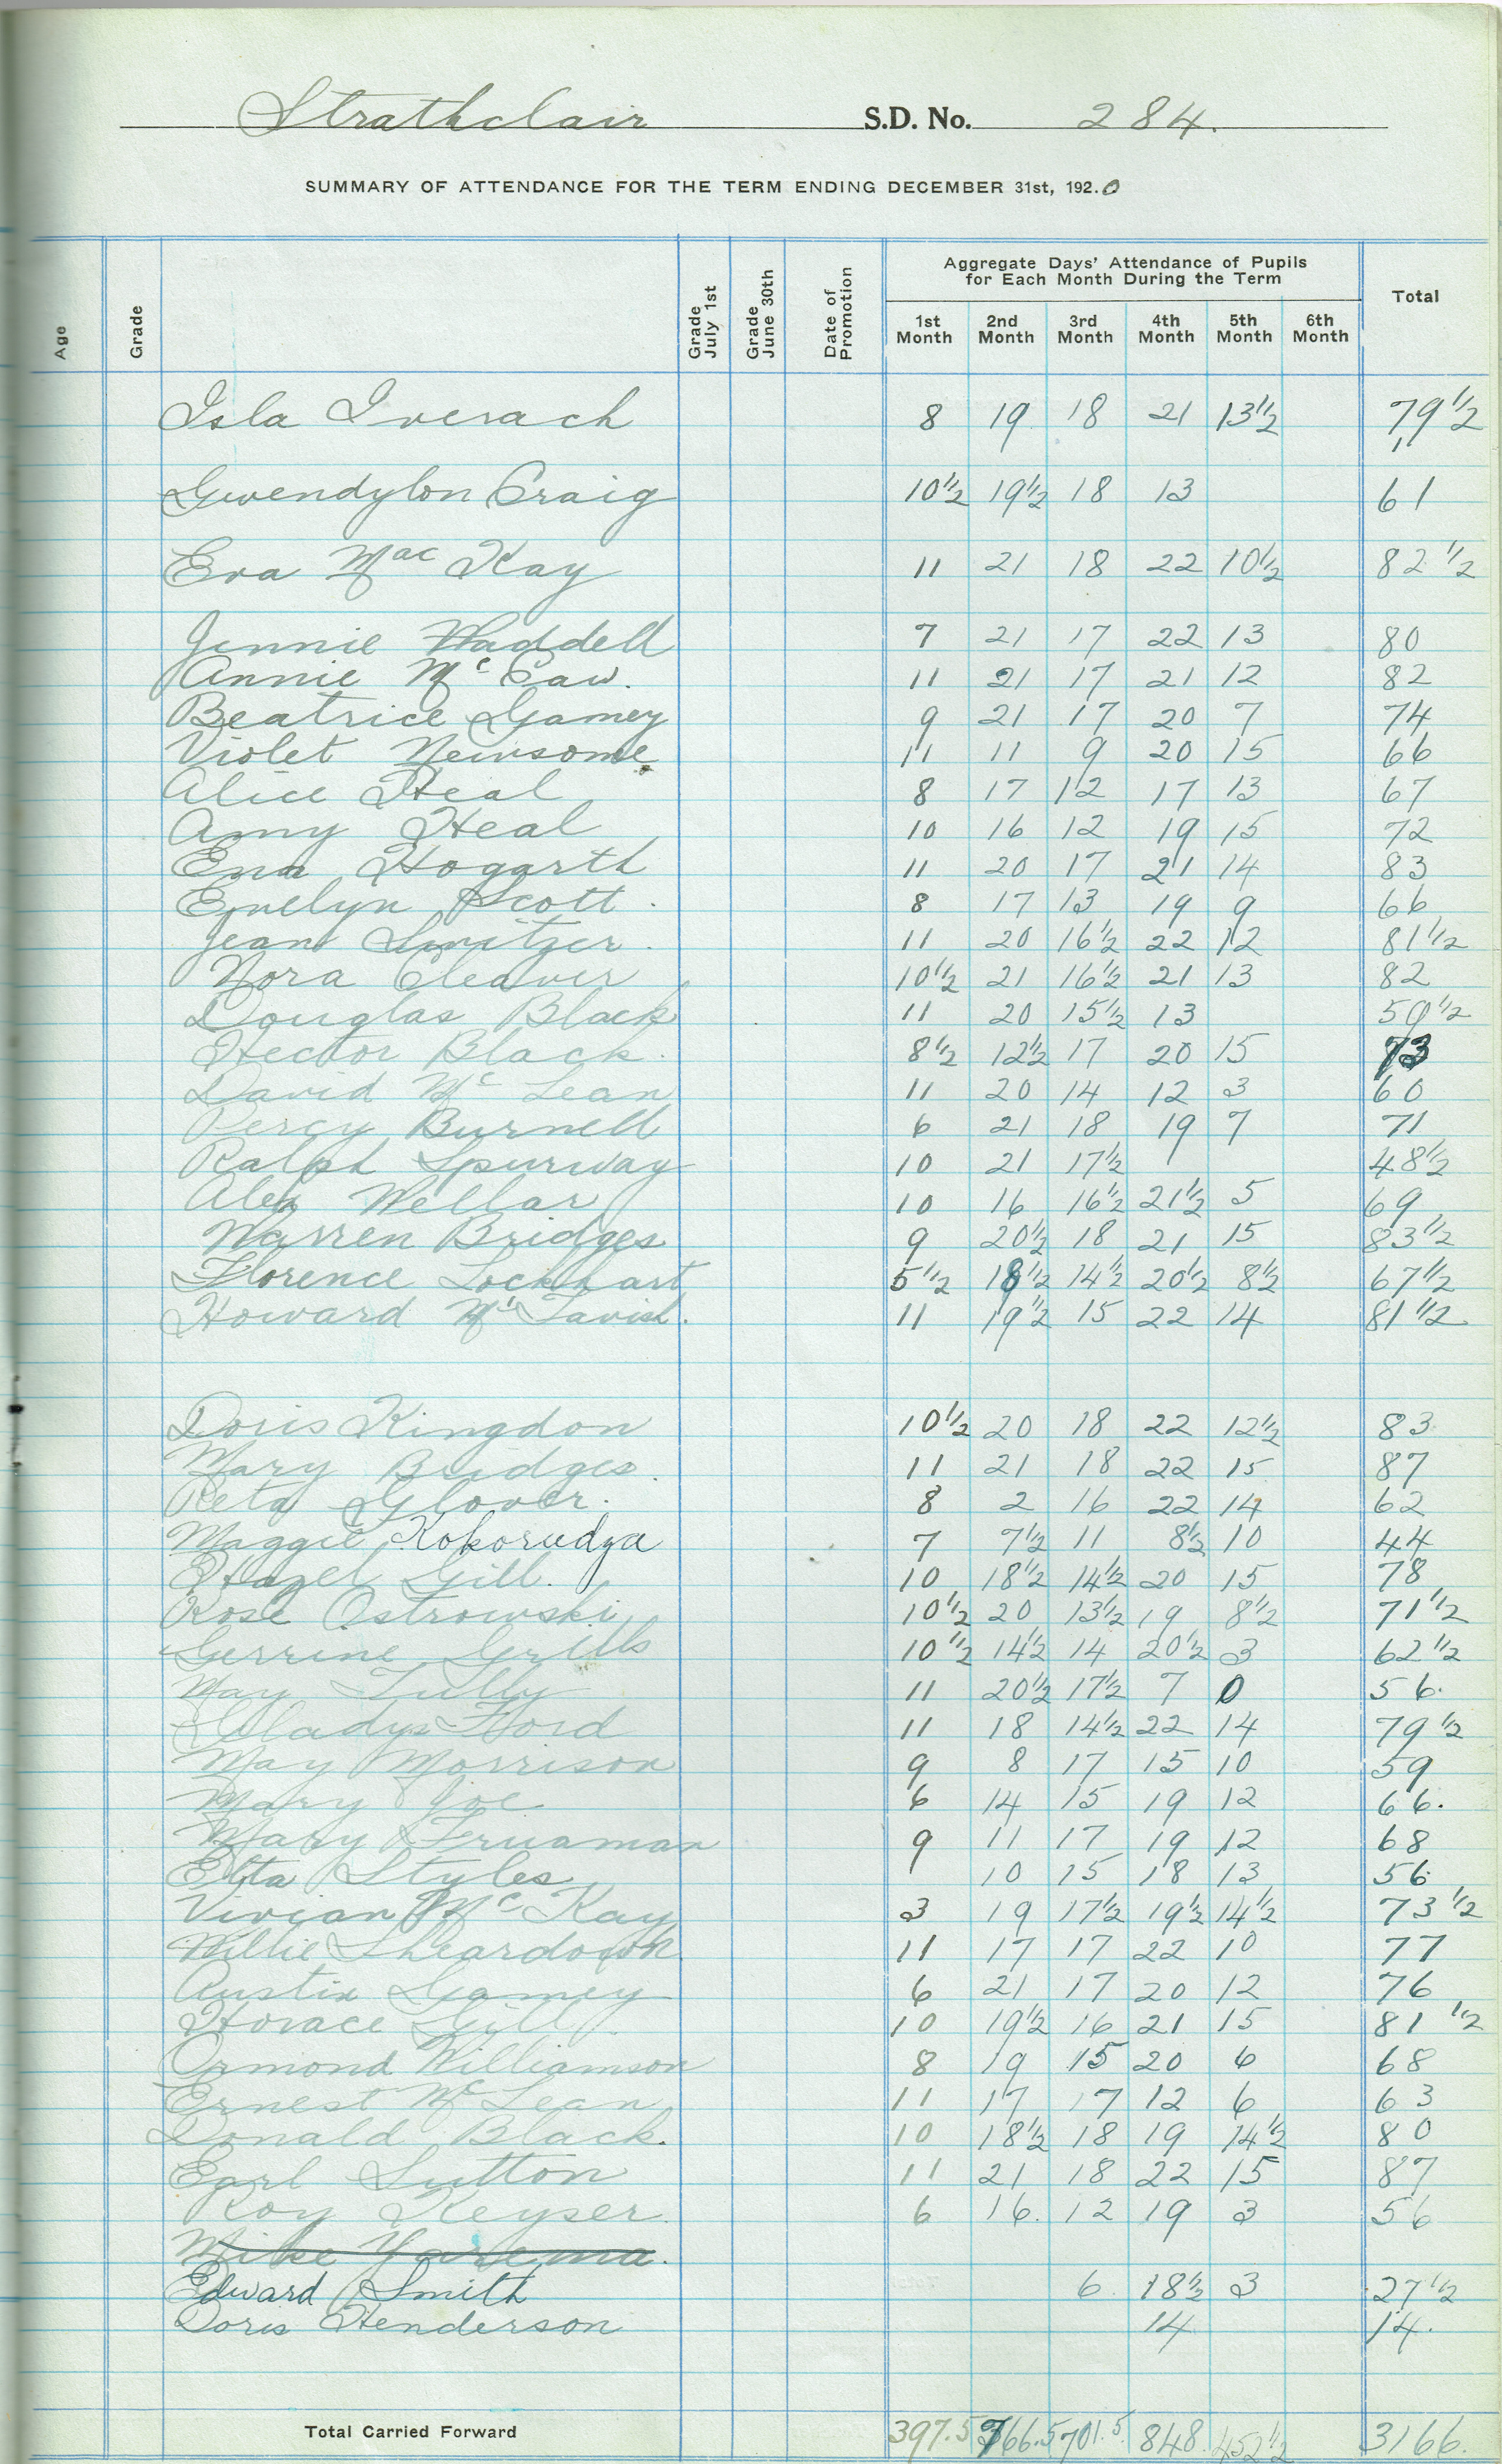 Strathclair S.D. No. 284.
SUMMARY OF ATTENDANCE FOR THE TERM ENDING DECEMBER 31st, 1920
Age Grade Grade July 1st Grade June 30th Date of Promotion Aggregate Days' Attendance of Pupils for Each Month During the Term Total
1st Month 2nd Month 3rd Month 4th Month 5th Month 6th Month
Isla Iverach 8 19 18 21 13½ 79½
Gwendylon Craig 10½ 19½ 18 13 61
Eva MacKay 11 21 18 22 10½ 82½
Jennie Waddell 7 21 17 22 13 80
Annie McCaw. 11 21 17 21 12 82
Beatrice Gamey 9 21 17 20 7 74
Violet Newsome 11 11 9 20 15 66
Alice Heal 8 17 12 17 13 67
Amy Heal 10 16 12 19 15 72
Ena Hogarth 11 20 17 21 14 83
Evelyn Scott. 8 17 13 19 9 66
Jean Switzer. 11 20 16½ 22 12 81½
Nora Cleaver 10½ 21 16½ 21 13 82
Douglas Black 11 20 15½ 13 59½
Hector Black. 8½ 12½ 17 20 15 73
David McLean 11 20 14 12 3 60
Percy Burnell 6 21 18 19 7 71
Ralph Spurway 10 21 17½ 48½
Alex Wellar 10 16 16½ 21½ 5 69
Warren Bridges 9 20½ 18 21 15 83½
Florence Lockhart 5½ 18½ 14½ 20½ 8½ 67½
Howard McTavish. 11 19½ 15 22 14 81½
Doris Kingdon 10½ 20 18 22 12½ 83
Mary Bridges. 11 21 18 22 15 87
Reta Glover. 8 2 16 22 14 62
Maggie Kokorudza 7 7½ 11 8½ 10 44
Hazel Gill. 10 18½ 14½ 20 15 78
Rose Ostrowski 10½ 20 13½ 19 8½ 71½
Gerrine Grills 10½ 14½ 14 20½ 3 62½
May Tully 11 20½ 17½ 7 0 56.
Gladys Ford 11 18 14½ 22 14 79½
May Morrison 9 8 17 15 10 59
Mary Joe 6 14 15 19 12 66.
Mary 9 11 17 19 12 68
Etta Styles 10 15 18 13 56
Vivian McKay 3 19 17½ 19½ 14½ 73½
Willie Sheardown 11 17 17 22 10 77
Austin Gamey 6 21 17 20 12 76
Horace Gill 10 19½ 16 21 15 81½
Ormond Williamson 8 19 15 20 6 68
Ernest McLean 11 17 17 12 6 63
Donald Black. 10 18½ 18 19 14½ 80
Earl Sutton 11 21 18 22 15 87
Roy Keyser. 6 16. 12 19 3 56
Mike Yarema.
Edward Smith 6 18½ 3 27½
Doris Henderson 14 14.
Total Carried Forward 397.5 766.5 701.5 848. 452½ 3166.